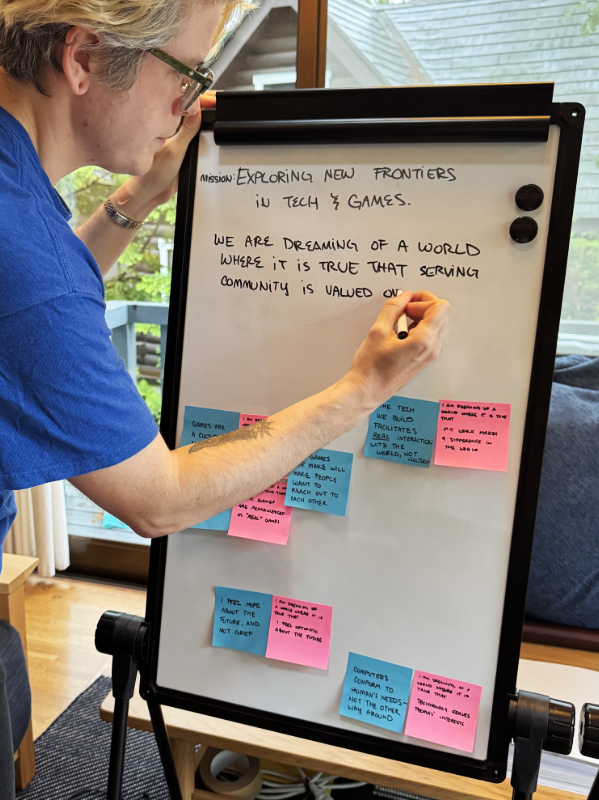 MISSION: EXPLORING NEW FRONTIERS
IN TECH & GAMES.
WE ARE DREAMING OF A WORLD
WHERE IT IS TRUE THAT SERVING
COMMUNITY IS VALUED OV
GAMES ARE
I AM
GAMES
WE MAKE WILL
MAKE PEOPLE
WANT TO
REACH OUT TO
EACH OTHER
ARE
AS "REAL" GAMES
THE TECH
WE BUILD
FACILITATES
REAL INTERACTION
WITH THE
WORLD, NOT
I AM DREAMING OF A
WORLD WHERE IT IS TRUE
THAT
MY WORK MAKES
A DIFFERENCE IN
THE WORLD
I FEEL HOPE
ABOUT THE
FUTURE, AND
NOT GRIEF
I AM DREAMING OF
A WORLD WHERE IT IS
TRUE THAT
I FEEL OPTIMISTIC
ABOUT THE FUTURE
COMPUTERS
CONFORM TO
HUMAN'S NEEDS—
NOT THE OTHER
WAY AROUND
I AM DREAMING OF A
WORLD WHERE IT IS
TRUE THAT
TECHNOLOGY SERVES
PEOPLES' INTERESTS